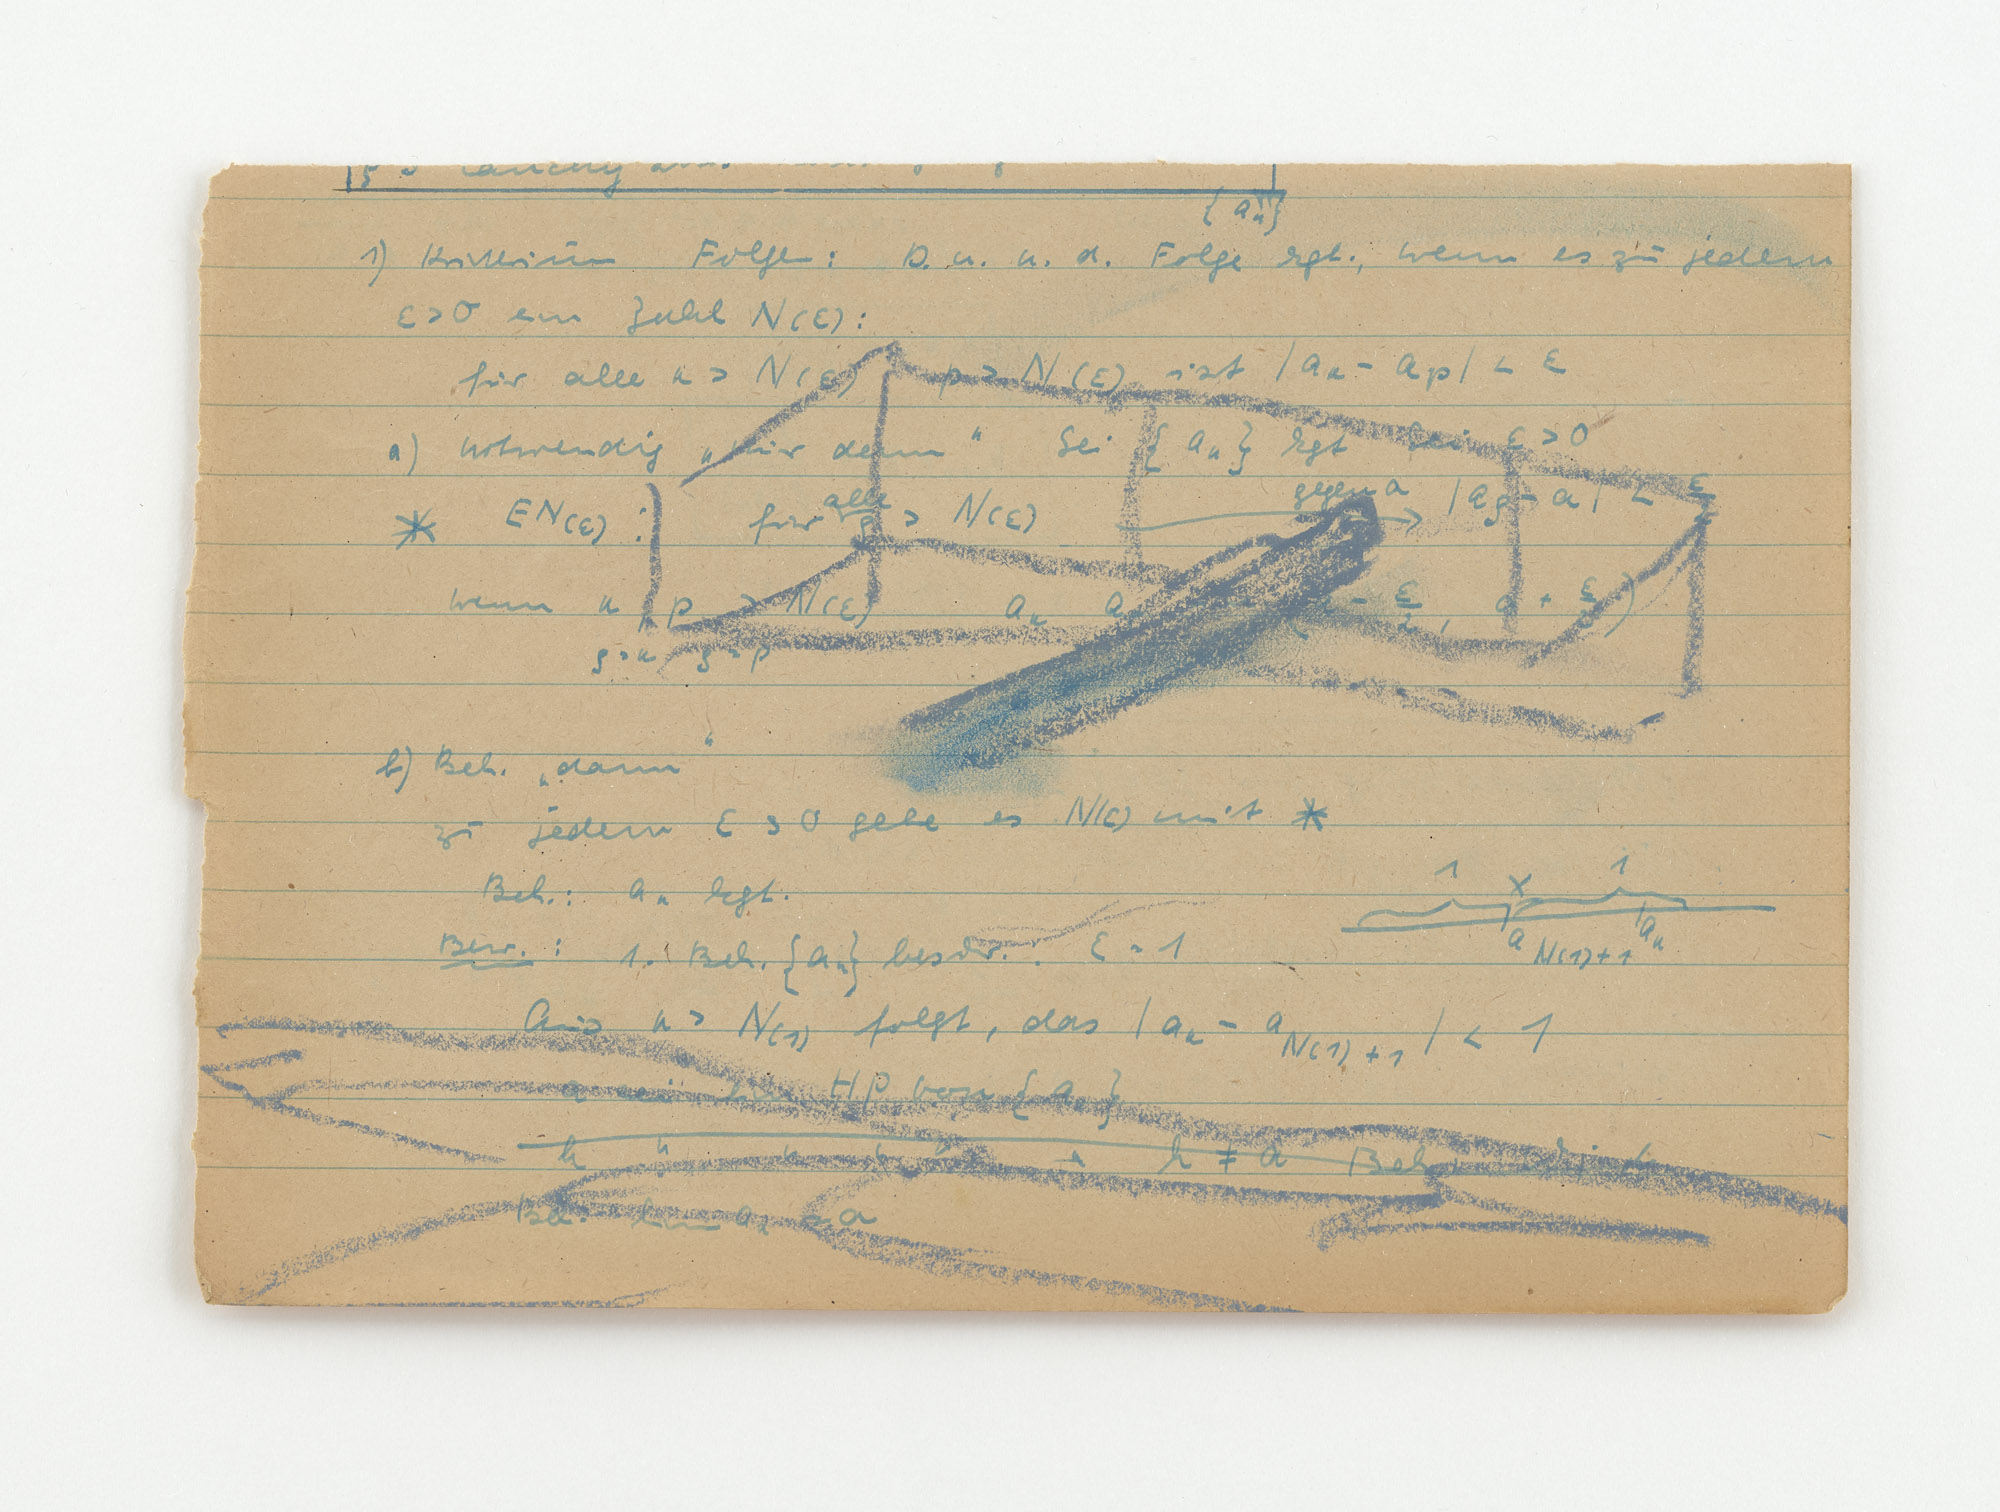 {aₙ}
1) Kriterium Folgen: D. u. n. d. Folge kgt., wenn es zu jedem
ε>0 ein Zahl N(ε):
für alle n > N(ε) p > N(ε) ist |aₙ - aₚ| < ε
a) notwendig „nur dann" Sei {aₙ} kgt Sei ε>0
* EN(ε): für alle ρ > N(ε) gegen a → |aρ - a| < ε/2
wenn n, p > N(ε) aₙ a - ε/2, a + ε/2)
ρ=n, ρ=p
b) Beh. „dann"
zu jedem ε>0 gebe es N(ε) mit *
1 x 1
Beh.: aₙ kgt.
a N(1)+1 aₙ
Bew.: 1. Beh. {aₙ} beschr. : ε=1
Aus n > N(1) folgt, das |aₙ - a N(1)+1| < 1
a sei ein HP von {aₙ}
h " " " " h ≠ a Beh.
Beh: lim aₙ = a